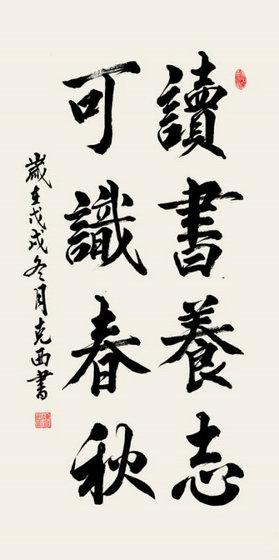 讀書養志
可識春秋
歲在戊戌冬月克西書